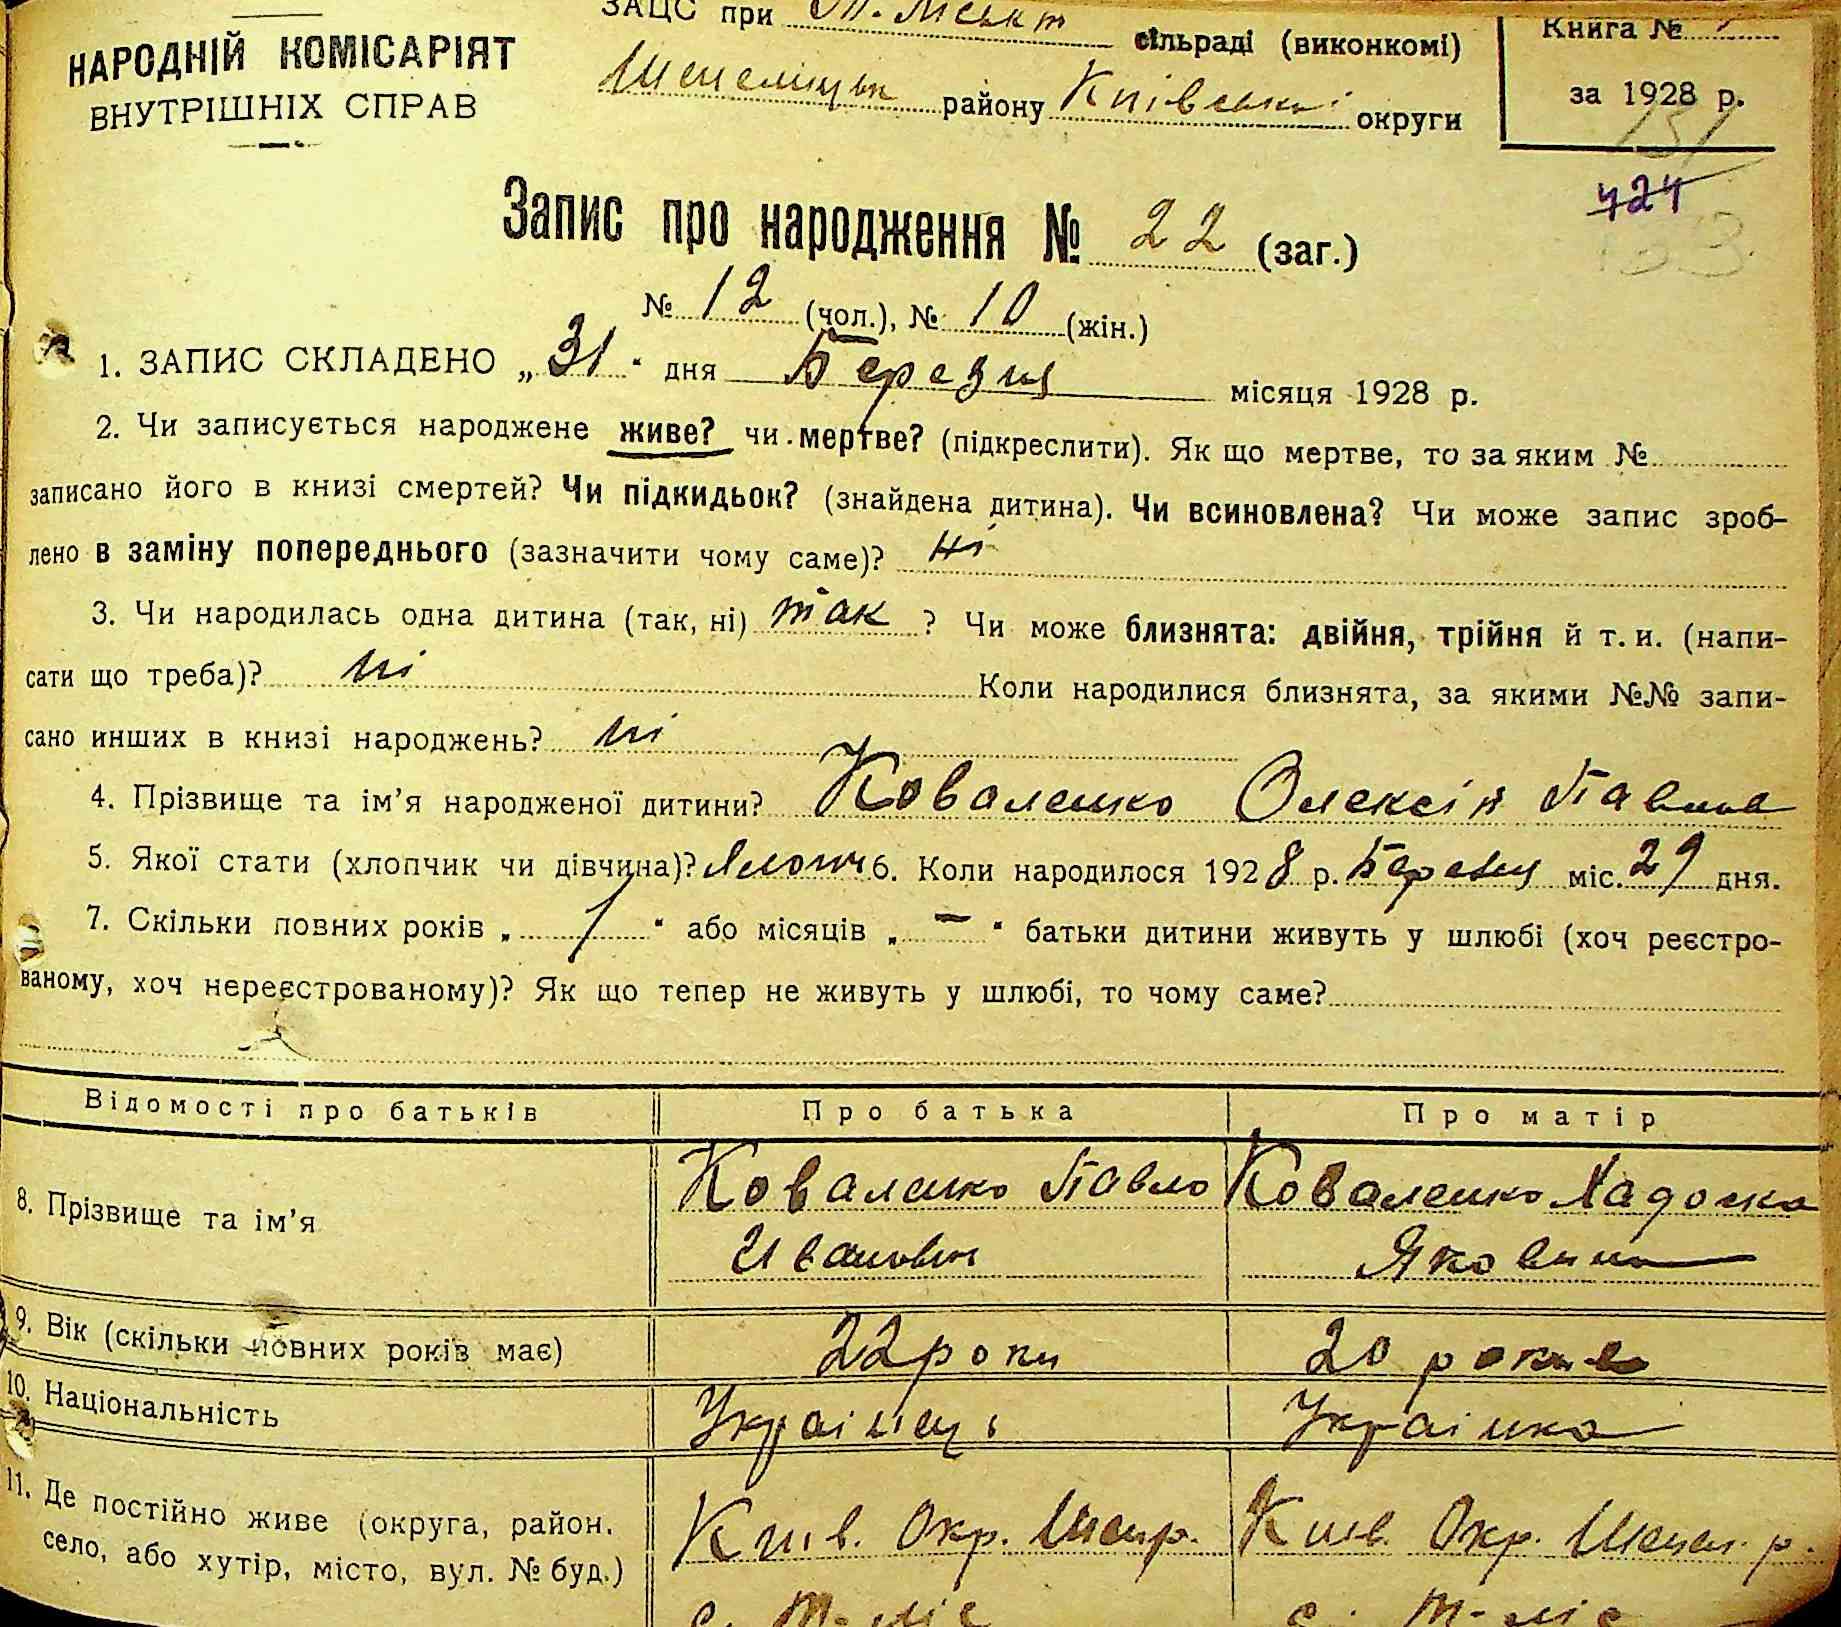 НАРОДНІЙ КОМІСАРІЯТ
ВНУТРІШНІХ СПРАВ
ЗАЦС при сільраді (виконкомі)
району Київської округи
Книга №
за 1928 р.
131
424
133
Запис про народження № 22 (заг.)
№ 12 (чол.), № 10 (жін.)
1. ЗАПИС СКЛАДЕНО „31" дня Березня місяця 1928 р.
2. Чи записується народжене живе? чи мертве? (підкреслити). Як що мертве, то за яким №
записано його в книзі смертей? Чи підкидьок? (знайдена дитина). Чи всиновлена? Чи може запис зроб-
лено в заміну попереднього (зазначити чому саме)? ні
3. Чи народилась одна дитина (так, ні) так ? Чи може близнята: двійня, трійня й т. и. (напи-
сати що треба)? ні Коли народилися близнята, за якими №№ запи-
сано инших в книзі народжень? ні
4. Прізвище та ім'я народженої дитини? Коваленко Олексій Павлов
5. Якої стати (хлопчик чи дівчина)? 6. Коли народилося 1928 р. Березня міс. 29 дня.
7. Скільки повних років „ 1 " або місяців „ – " батьки дитини живуть у шлюбі (хоч реєстро-
ваному, хоч нереєстрованому)? Як що тепер не живуть у шлюбі, то чому саме?
Відомості про батьків Про батька Про матір
8. Прізвище та ім'я Коваленко Павло Коваленко
Иванович Яковина
9. Вік (скільки повних років має) 22 роки 20 роки
10. Національність Українець Українка
11. Де постійно живе (округа, район, село, або хутір, місто, вул. № буд.) Київ. Окр. Шепр. Київ. Окр. Шепел. р.
с. Т-Ліс с. Т-Ліс